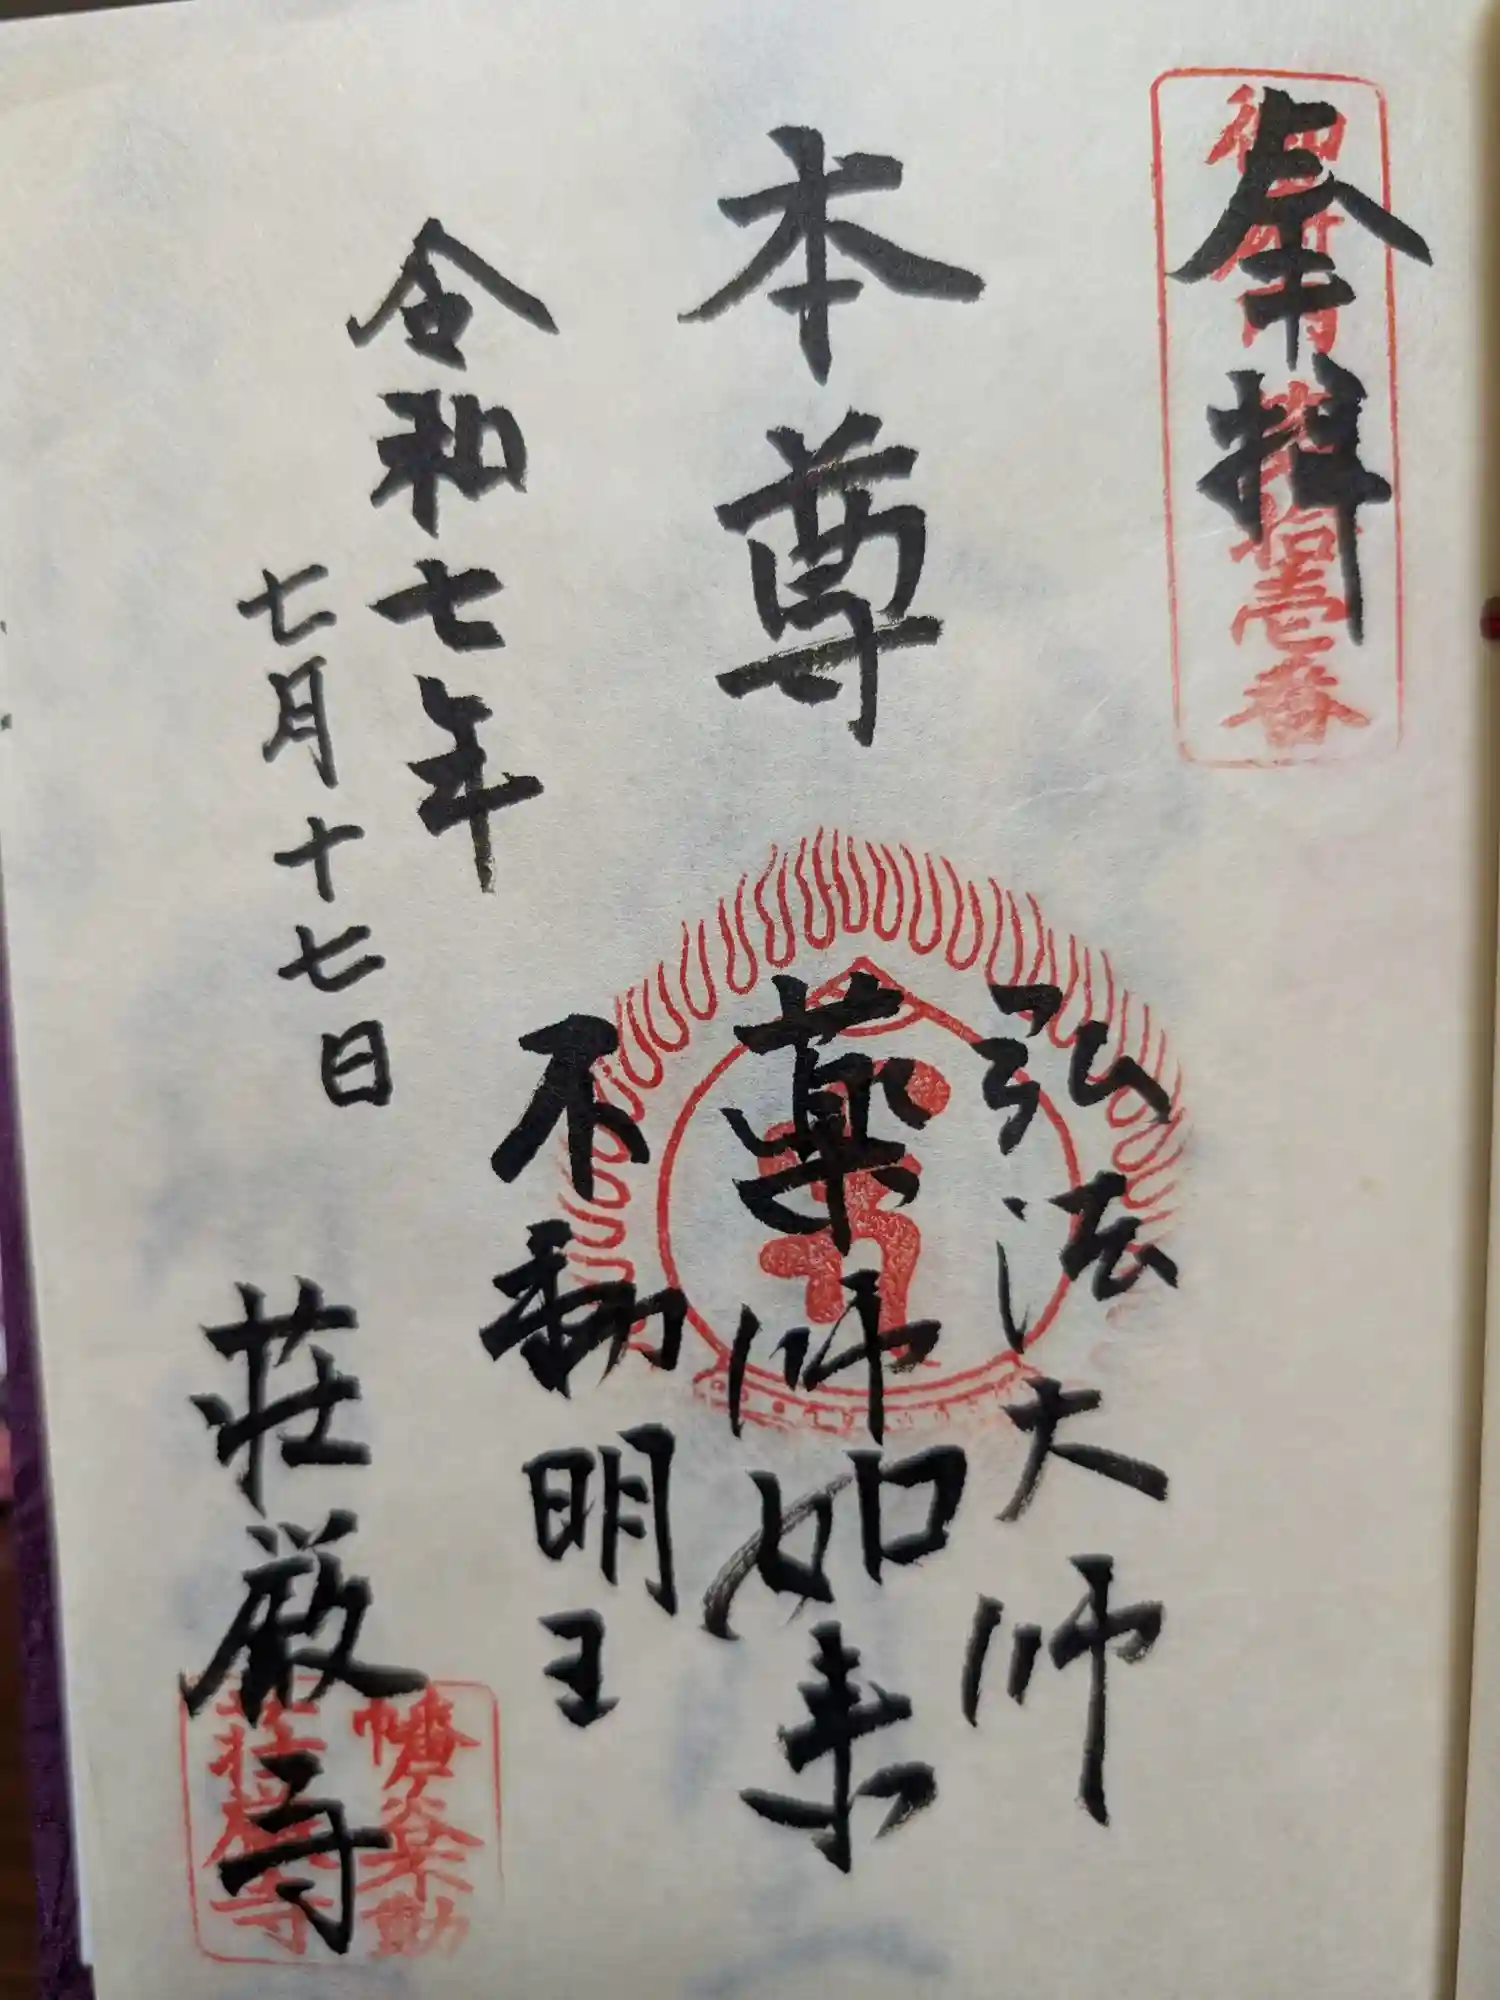 奉拝
本尊
弘法大師
薬師如来
不動明王
令和七年
七月十七日
荘厳寺
幡ヶ谷不動
荘厳寺